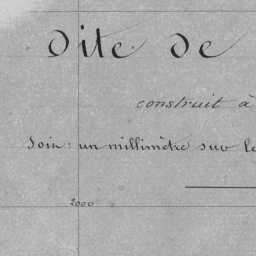 Dite de
construit à
Soit : un millimètre sur le
2000